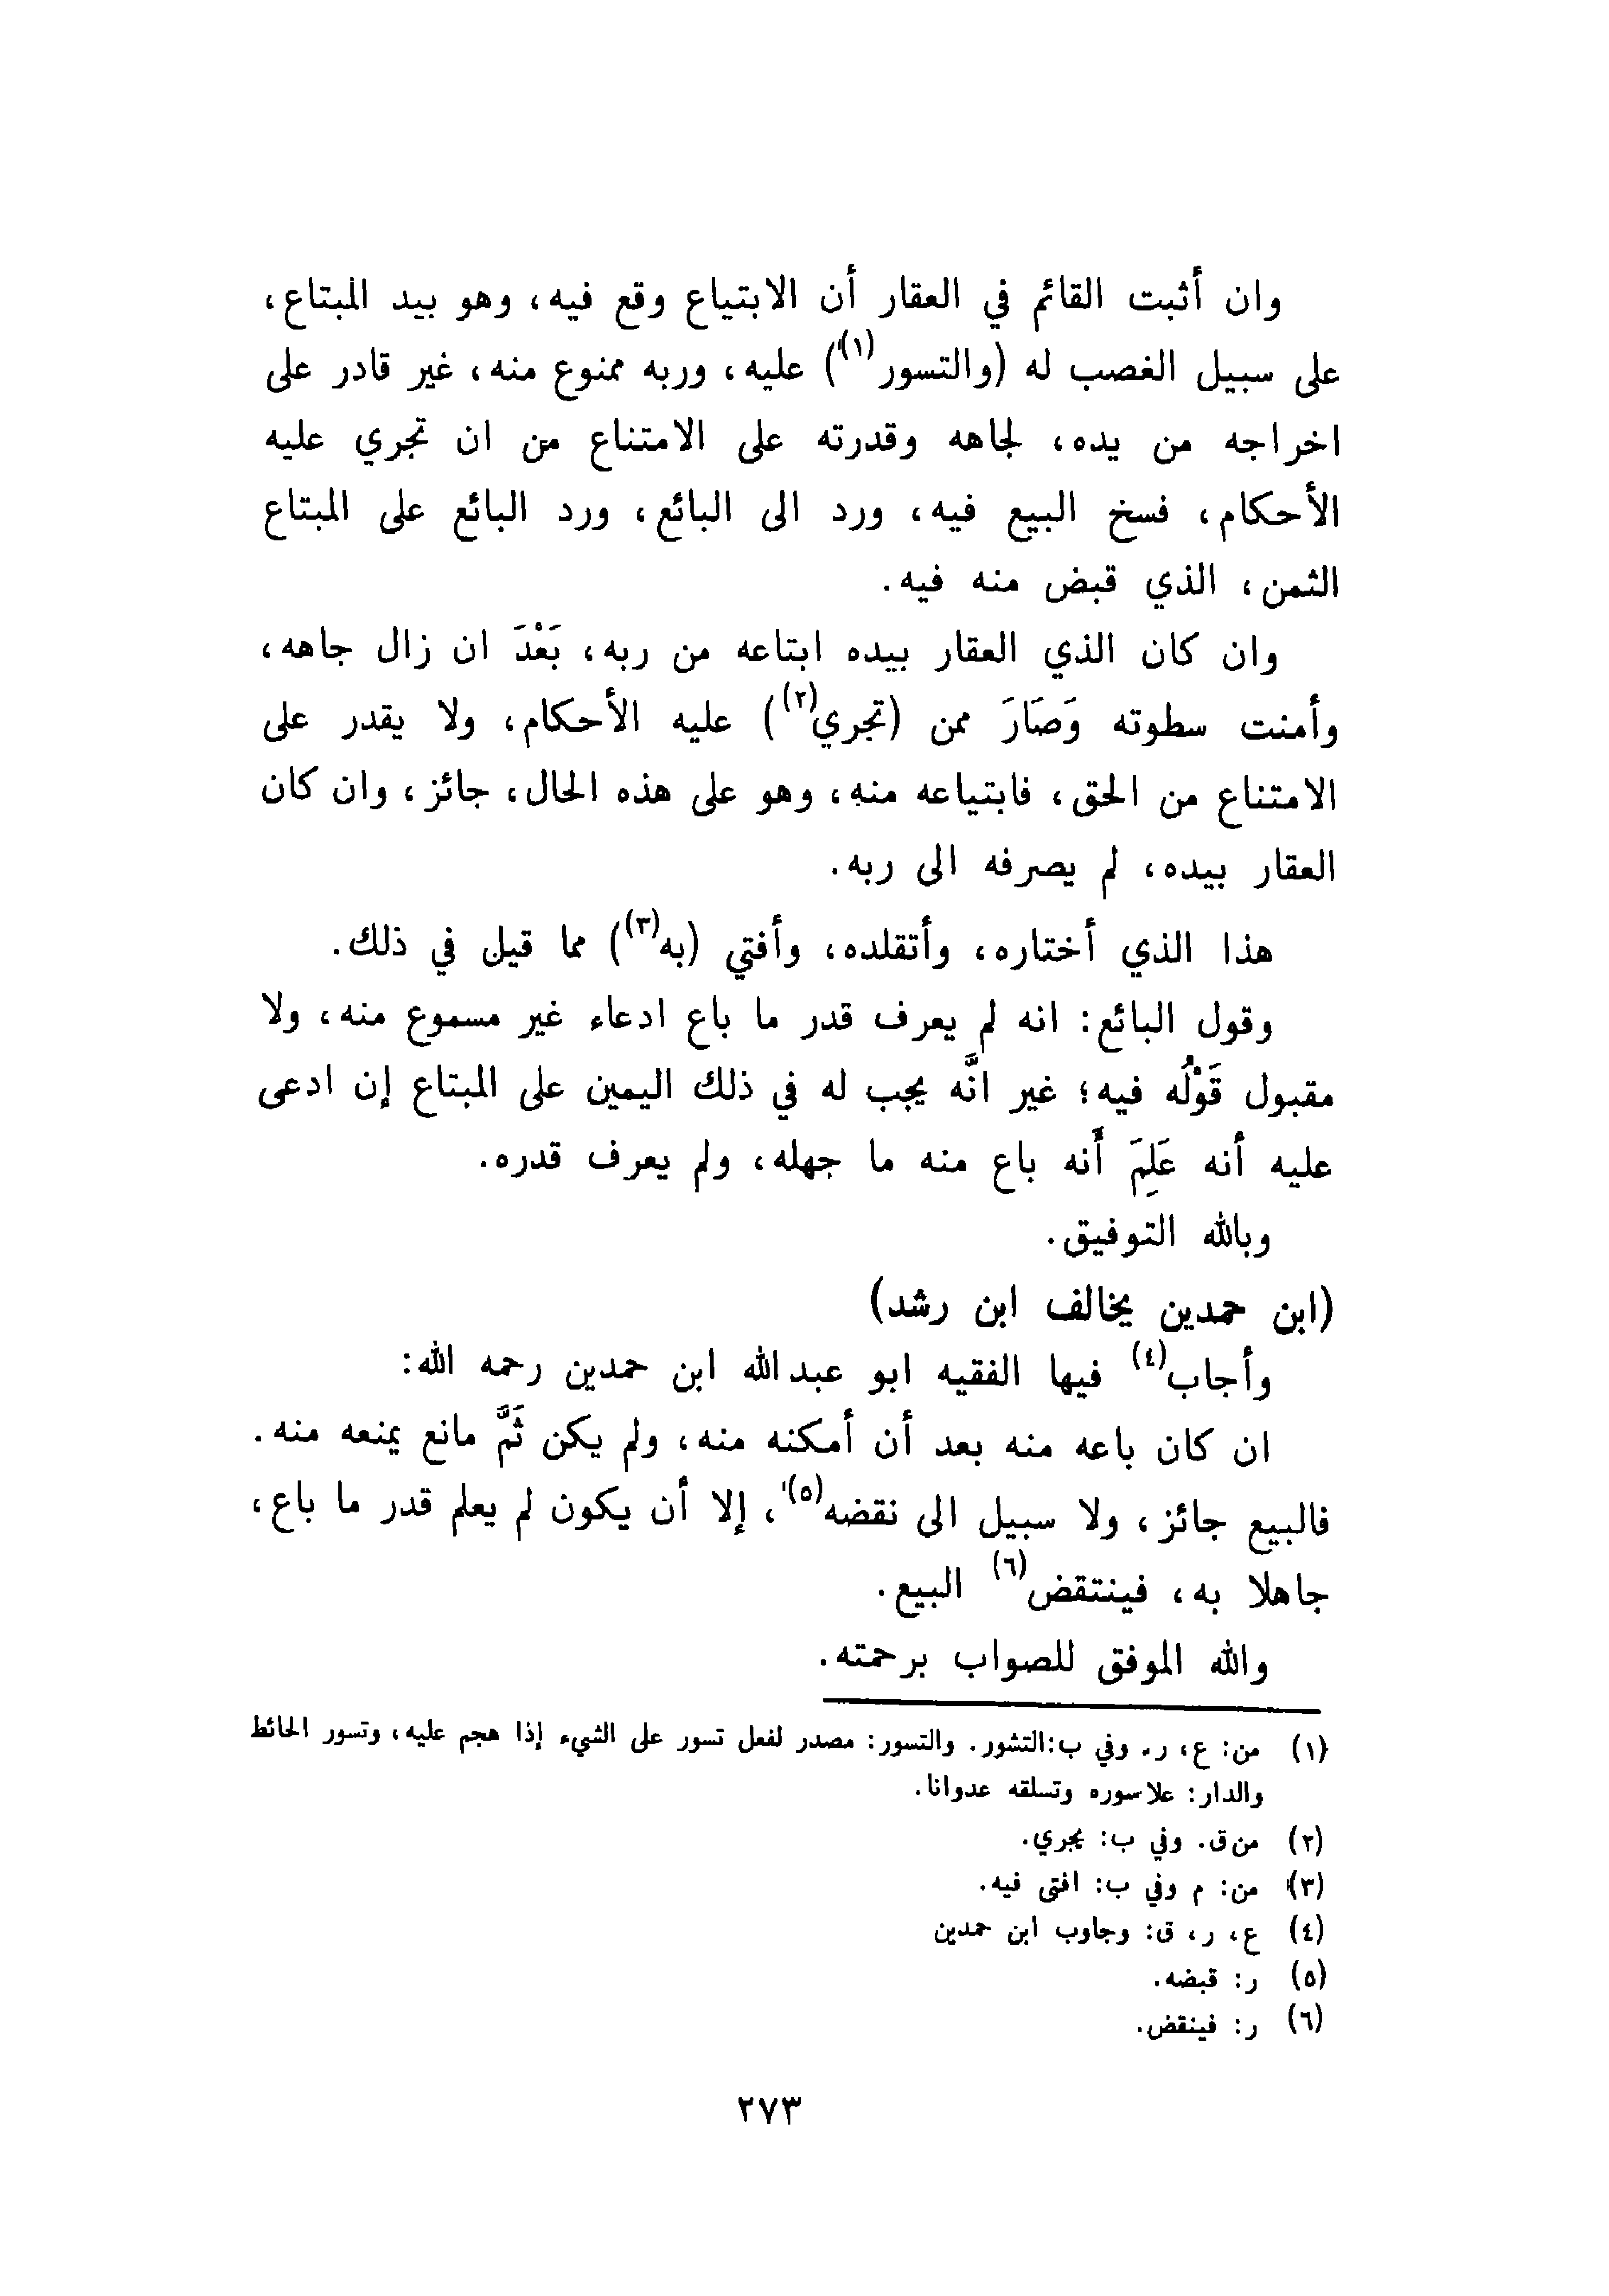 وان أثبت القائم في العقار أن الابتياع وقع فيه، وهو بيد المبتاع،
على سبيل الغصب له (والتسور(١)) عليه، وربه ممنوع منه، غير قادر على
اخراجه من يده، لجاهه وقدرته على الامتناع من ان تجري عليه
الأحكام، فسخ البيع فيه، ورد الى البائع، ورد البائع على المبتاع
الثمن، الذي قبض منه فيه.
وان كان الذي العقار بيده ابتاعه من ربه، بَعْدَ ان زال جاهه،
وأمنت سطوته وَصَارَ ممن (تجري(٢)) عليه الأحكام، ولا يقدر على
الامتناع من الحق، فابتياعه منه، وهو على هذه الحال، جائز، وان كان
العقار بيده، لم يصرفه الى ربه.
هذا الذي أختاره، وأتقلده، وأفتي (به(٣)) مما قيل في ذلك.
وقول البائع: انه لم يعرف قدر ما باع ادعاء غير مسموع منه، ولا
مقبول قَوْلُه فيه؛ غير انَّه يجب له في ذلك اليمين على المبتاع إن ادعى
عليه أنه عَلِمَ أَنه باع منه ما جهله، ولم يعرف قدره.
وبالله التوفيق.
(ابن حمدين يخالف ابن رشد)
وأجاب(٤) فيها الفقيه ابو عبدالله ابن حمدين رحمه الله:
ان كان باعه منه بعد أن أمكنه منه، ولم يكن ثَمَّ مانع يمنعه منه.
فالبيع جائز، ولا سبيل الى نقضه(٥)، إلا أن يكون لم يعلم قدر ما باع،
جاهلا به، فينتقض(٦) البيع.
والله الموفق للصواب برحمته.
(١) من: ع، ر. وفي ب:التشور. والتسور: مصدر لفعل تسور على الشيء إذا هجم عليه، وتسور الحائط
والدار: علا سوره وتسلقه عدوانا.
(٢) من ق. وفي ب: يجري.
(٣) من: م وفي ب: افتى فيه.
(٤) ع، ر، ق: وجاوب ابن حمدين
(٥) ر: قبضه.
(٦) ر: فينقض.
٢٧٣